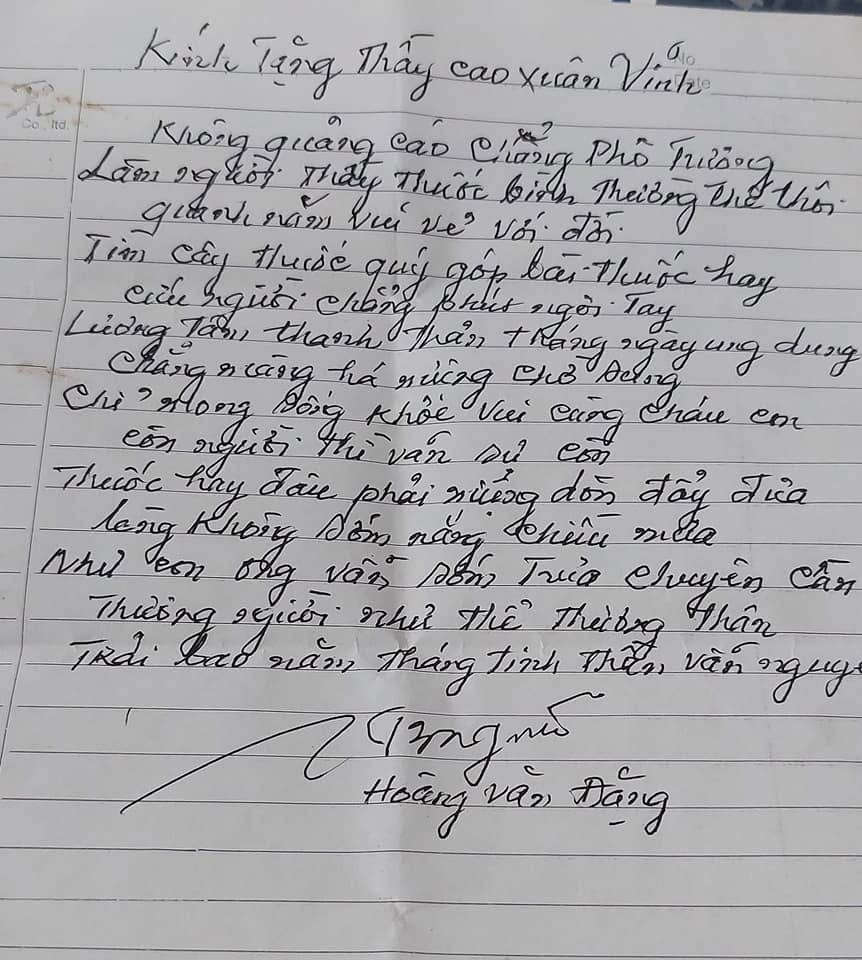 Kính Tặng Thầy Cao Xuân Vinh
No
Co., ltd.
Không quảng cáo chẳng Phô Trương
Làm người Thầy Thuốc bình Thường Thế thôi
quanh năm vui vẻ với đời
Tìm cây thuốc quý góp bài thuốc hay
cứu người chẳng phút ngơi Tay
Lương Tâm thanh Thản tháng ngày ung dung
Chẳng màng há
Chỉ mong sống khỏe vui cùng cháu con
còn người thì vẫn sử còn
Thuốc hay đâu phải đòn đẩy đưa
lòng không sớm nắng chiều mưa
Như con ong vẫn sớm Trưa chuyên cần
Thương người như thể Thương Thân
Trải bao năm tháng tinh Thần vẫn nguyê
Hoàng Văn Đặng